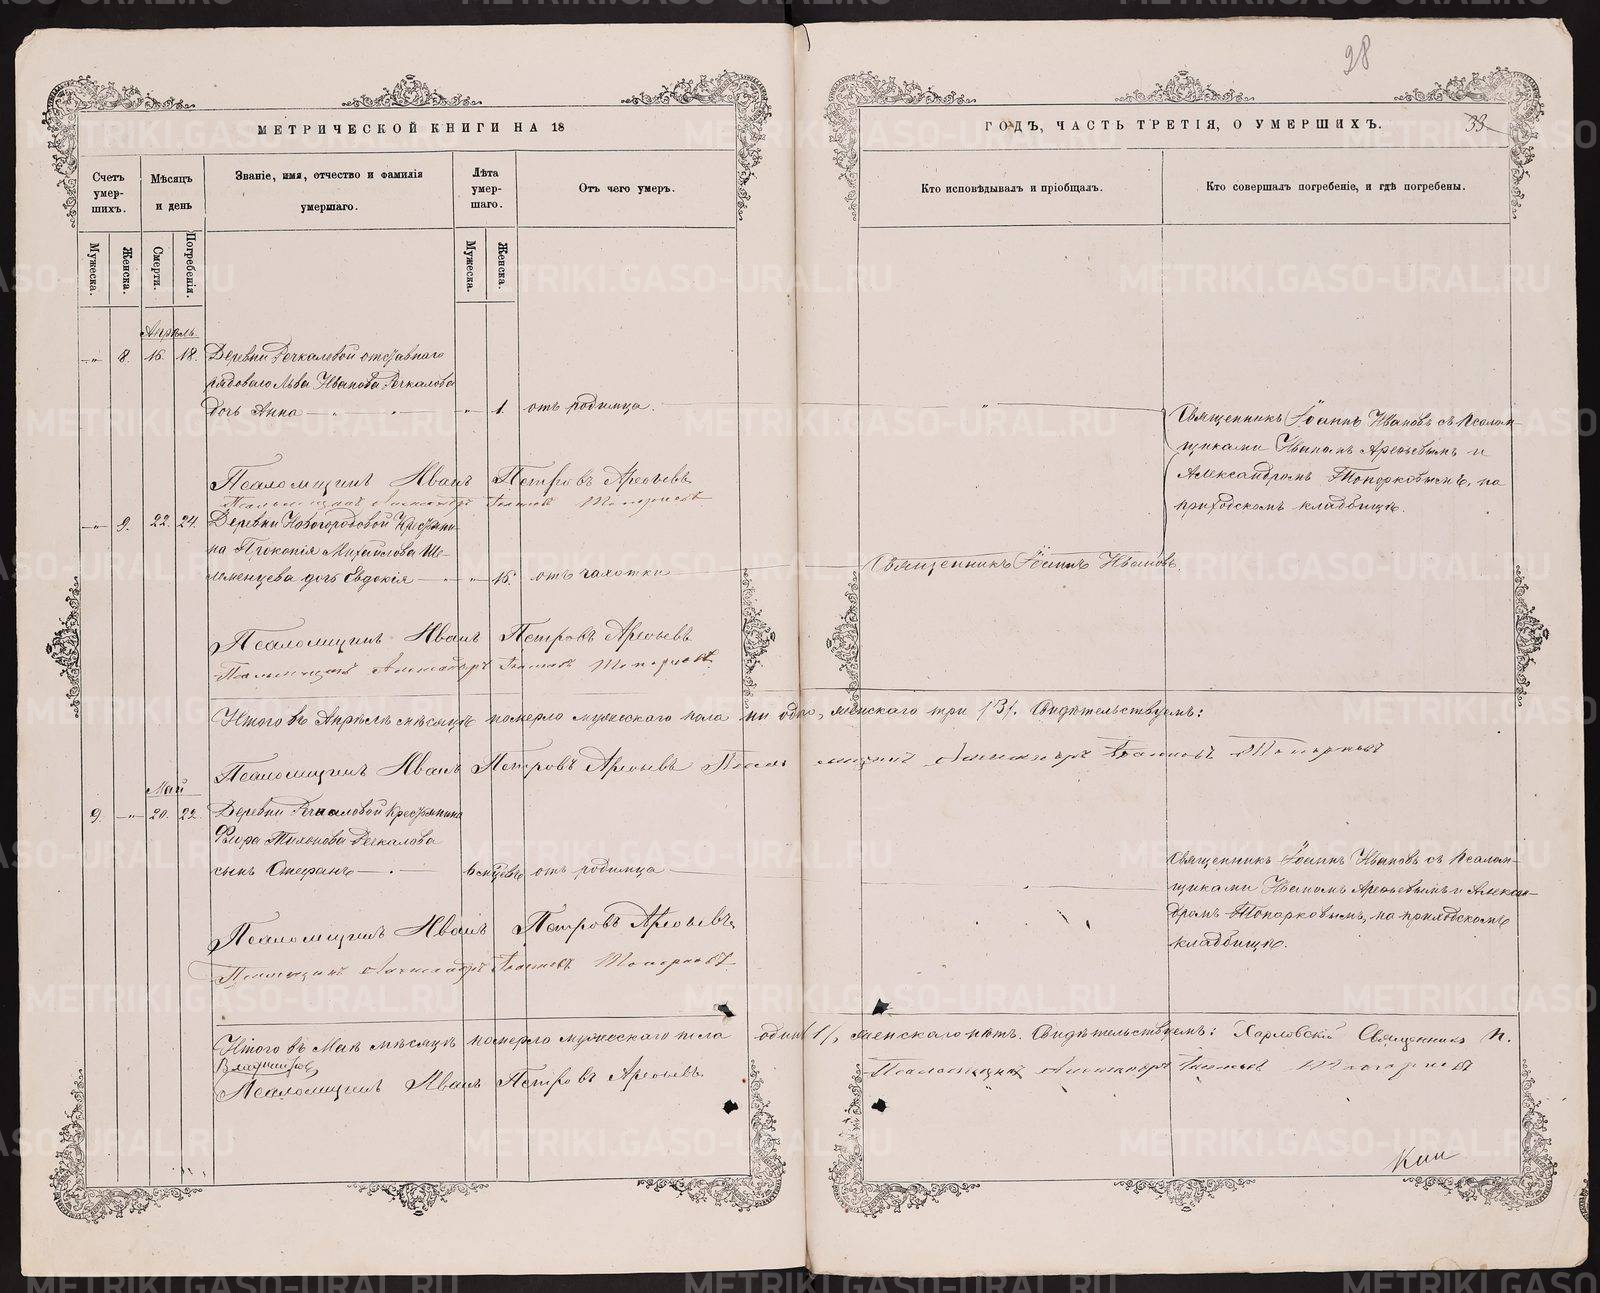 98
МЕТРИЧЕСКОЙ КНИГИ НА 18
ГОДЪ, ЧАСТЬ ТРЕТІЯ, О УМЕРШИХЪ.
33
Счетъ умер-шихъ.
Мѣсяцъ и день
Званіе, имя, отчество и фамилія
умершаго.
Лѣта умер-шаго.
Отъ чего умеръ.
Кто исповѣдывалъ и пріобщалъ.
Кто совершалъ погребеніе, и гдѣ погребены.
Мужеска.
Женска.
Смерти.
Погребенія.
Мужеска.
Женска.
Апрѣль
-"- 8. 16. 18. Деревни Речкаловой отставнаго
рядоваго Льва Иванова Речкалова
дочь Анна - " - " - 1. отъ родимца.
Священникъ Іоаннъ Ивановъ съ Псалом-
щиками Иваномъ Арефьевымъ и
Александромъ Топорковымъ, на
приходскомъ кладбищѣ.
Псаломщикъ Иванъ Петровъ Арефьевъ
Псаломщикъ Александръ Топорковъ
-"- 9. 22. 24. Деревни Новогородовой Крестьяни-
на Прокопія Михайлова
дочь Евдокія - " - 16. отъ чахотки
Священникъ Іоаннъ Ивановъ.
Псаломщикъ Иванъ Петровъ Арефьевъ
Псаломщикъ Александръ Топорковъ
Итого въ Апрѣлѣ мѣсяцѣ померло мужескаго пола ни одно, женскаго три /3/. Свидѣтельствуемъ:
Псаломщикъ Иванъ Петровъ Арефьевъ Псаломщикъ Александръ Топорковъ
Май
9. -"- 20. 22. Деревни Речкаловой Крестьянина
Флора Тихонова Речкалова
сынъ Стефанъ - " - 6 мцевъ отъ родимца
Священникъ Іоаннъ Ивановъ съ Псалом-
щиками Иваномъ Арефьевымъ и Алексан-
дромъ Топорковымъ, на приходскомъ
кладбищѣ.
Псаломщикъ Иванъ Петровъ Арефьевъ
Псаломщикъ Александръ Топорковъ
Итого въ Маѣ мѣсяцѣ померло мужескаго пола одинъ /1/, женскаго нѣтъ. Свидѣтельствуемъ: Харловскій Священникъ И.
Псаломщикъ Иванъ Петровъ Арефьевъ
Псаломщикъ Александръ Топорковъ
METRIKI.GASO-URAL.RU